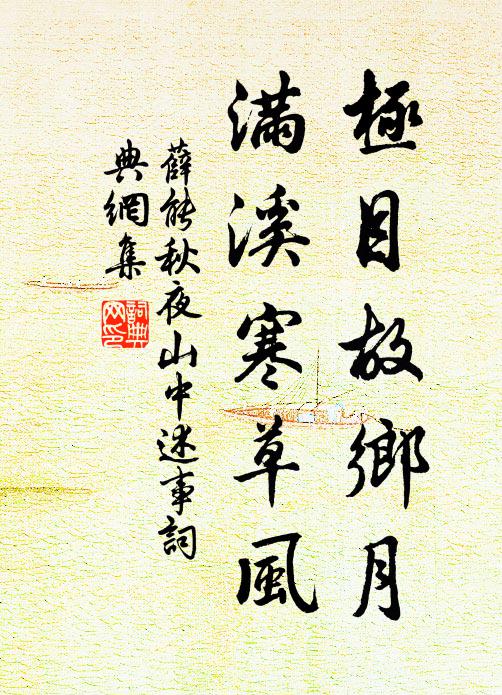 極目故鄉月
滿溪寒草風
薛能秋夜山中述事詞
典網集
詞典網印